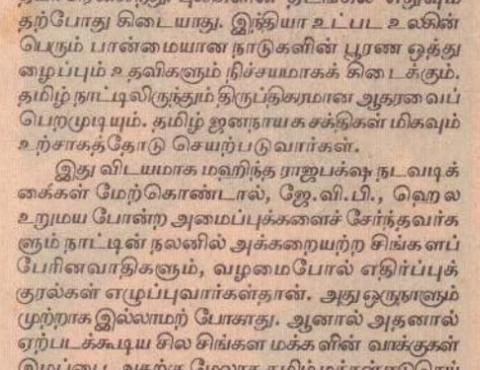 தற்போது கிடையாது. இந்தியா உட்பட உலகின்
பெரும் பான்மையான நாடுகளின் பூரண ஒத்து
ழைப்பும் உதவிகளும் நிச்சயமாகக் கிடைக்கும்.
தமிழ் நாட்டிலிருந்தும் திருப்திகரமான ஆதரவைப்
பெறமுடியும். தமிழ் ஜனநாயக சக்திகள் மிகவும்
உற்சாகத்தோடு செயற்படுவார்கள்.
இது விடயமாக மஹிந்த ராஜபக்ஷ நடவடிக்
கைகள் மேற்கொண்டால், ஜே.வி.பி., ஹெல
உறுமய போன்ற அமைப்புக்களைச் சேர்ந்தவர்க
ளும் நாட்டின் நலனில் அக்கறையற்ற சிங்களப்
பேரினவாதிகளும், வழமைபோல் எதிர்ப்புக்
குரல்கள் எழுப்புவார்கள்தான். அது ஒருநாளும்
முற்றாக இல்லாமற் போகாது. ஆனால் அதனால்
ஏற்படக்கூடிய சில சிங்கள மக்களின் வாக்குகள்